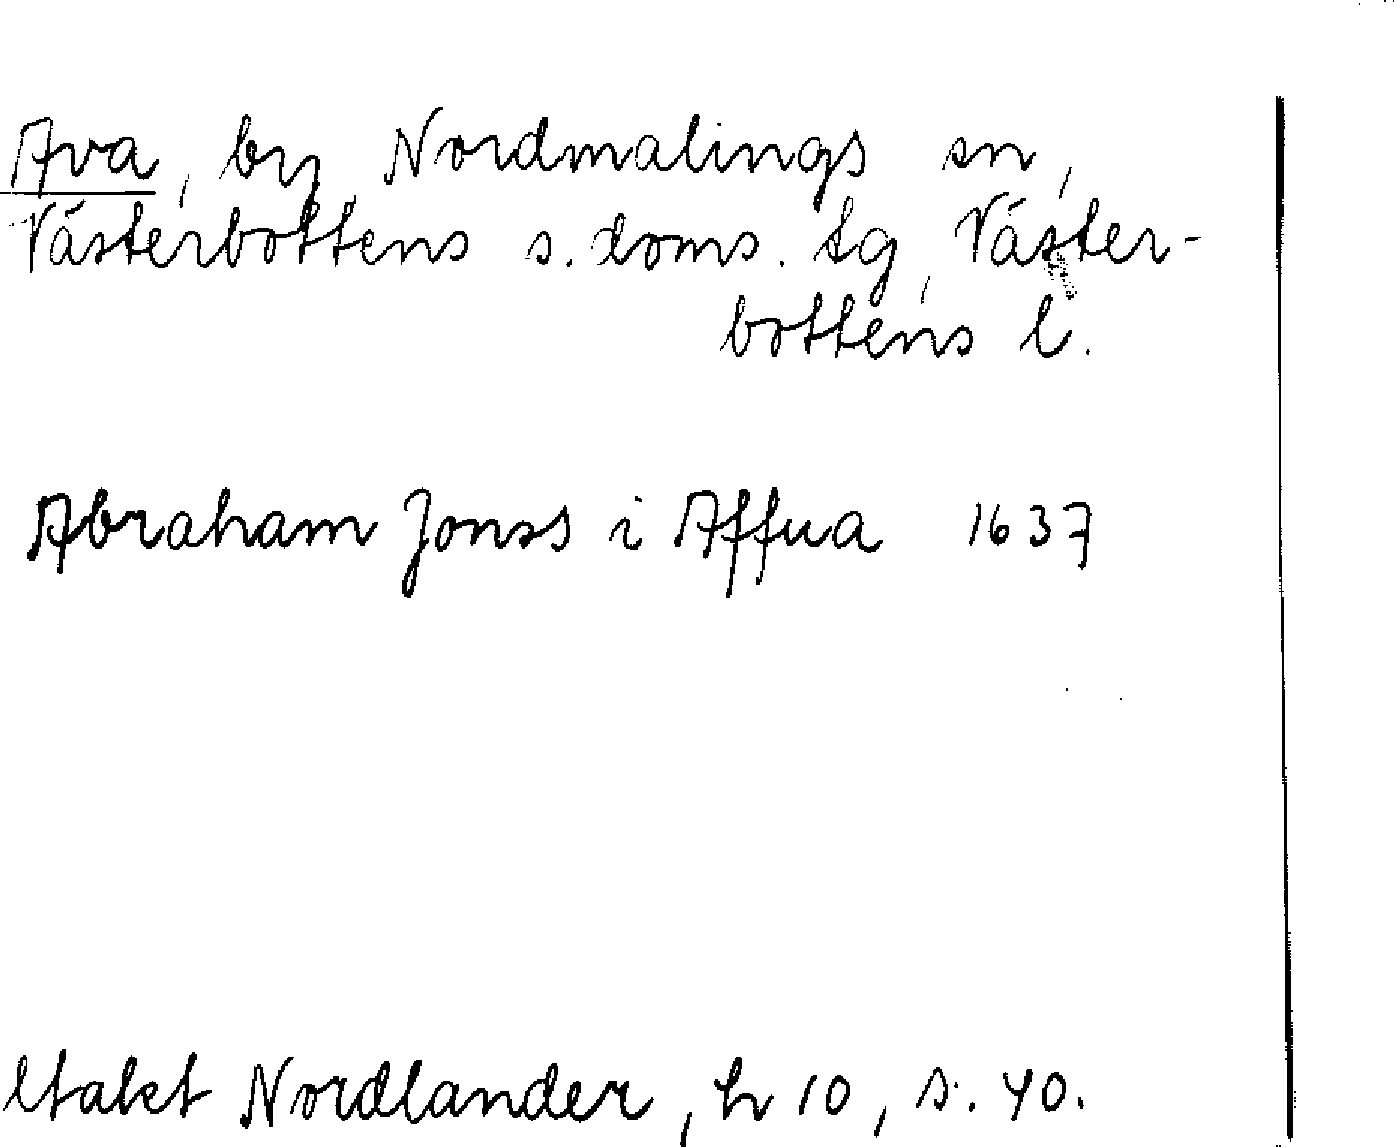 Ava, by, Nordmalings sn,
Västerbottens s. doms. tg, Väster-
bottens l.
Abraham Jonss i Affua 1637
ltakt Nordlander, h 10, s. 40.